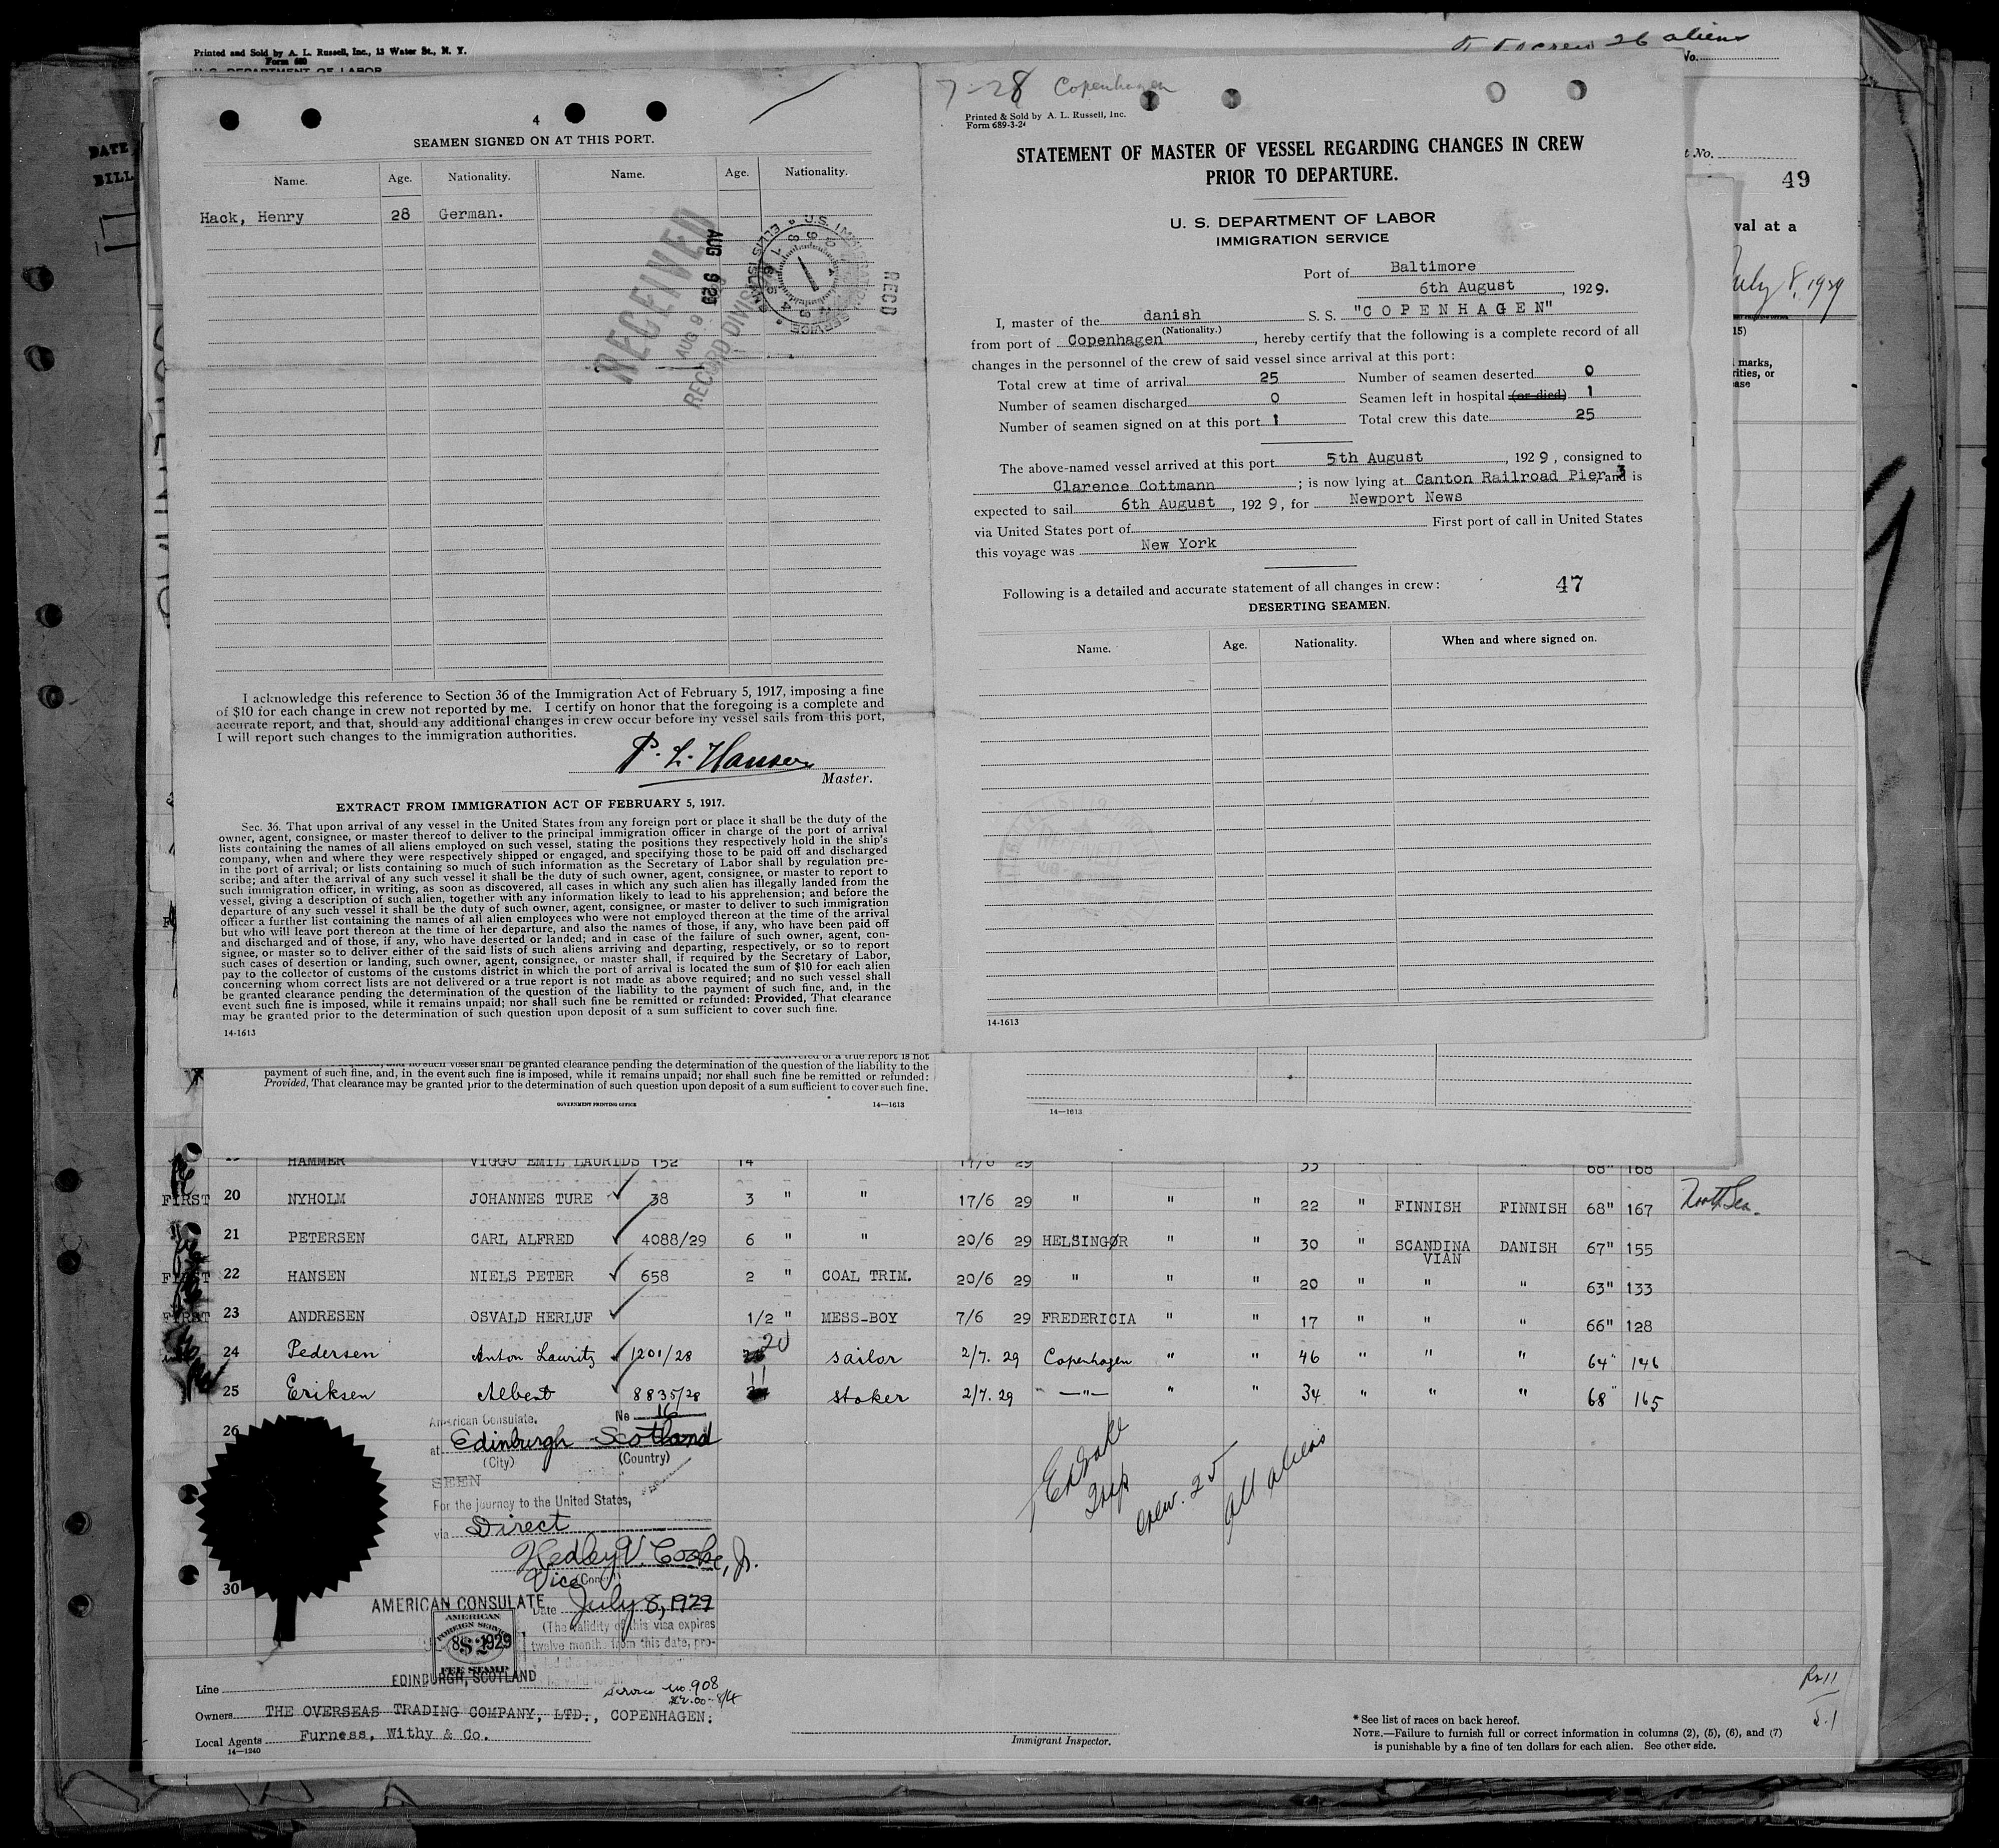 Printed and Sold by A. L. Russell, Inc., 13 Water St., N. Y.
Form 689
U. S. DEPARTMENT OF LABOR
crew 26 aliens
No.
DATE
BILL
4
SEAMEN SIGNED ON AT THIS PORT.
Name. Age. Nationality. Name. Age. Nationality.
Hack, Henry 28 German.
RECEIVED
AUG 9
RECORD DIVISION
AUG 9 29
U.S. IMMIGRATION SERVICE
ELLIS ISLAND
RECD
I acknowledge this reference to Section 36 of the Immigration Act of February 5, 1917, imposing a fine
of $10 for each change in crew not reported by me. I certify on honor that the foregoing is a complete and
accurate report, and that, should any additional changes in crew occur before my vessel sails from this port,
I will report such changes to the immigration authorities.
P. L. Hansen
Master.
EXTRACT FROM IMMIGRATION ACT OF FEBRUARY 5, 1917.
Sec. 36. That upon arrival of any vessel in the United States from any foreign port or place it shall be the duty of the
owner, agent, consignee, or master thereof to deliver to the principal immigration officer in charge of the port of arrival
lists containing the names of all aliens employed on such vessel, stating the positions they respectively hold in the ship's
company, when and where they were respectively shipped or engaged, and specifying those to be paid off and discharged
in the port of arrival; or lists containing so much of such information as the Secretary of Labor shall by regulation pre-
scribe; and after the arrival of any such vessel it shall be the duty of such owner, agent, consignee, or master to report to
such immigration officer, in writing, as soon as discovered, all cases in which any such alien has illegally landed from the
vessel, giving a description of such alien, together with any information likely to lead to his apprehension; and before the
departure of any such vessel it shall be the duty of such owner, agent, consignee, or master to deliver to such immigration
officer a further list containing the names of all alien employees who were not employed thereon at the time of the arrival
but who will leave port thereon at the time of her departure, and also the names of those, if any, who have been paid off
and discharged and of those, if any, who have deserted or landed; and in case of the failure of such owner, agent, con-
signee, or master so to deliver either of the said lists of such aliens arriving and departing, respectively, or so to report
such cases of desertion or landing, such owner, agent, consignee, or master shall, if required by the Secretary of Labor,
pay to the collector of customs of the customs district in which the port of arrival is located the sum of $10 for each alien
concerning whom correct lists are not delivered or a true report is not made as above required; and no such vessel shall
be granted clearance pending the determination of the question of the liability to the payment of such fine, and, in the
event such fine is imposed, while it remains unpaid; nor shall such fine be remitted or refunded: Provided, That clearance
may be granted prior to the determination of such question upon deposit of a sum sufficient to cover such fine.
14-1613
7-28 Copenhagen
Printed & Sold by A. L. Russell, Inc.
Form 689-3-24
STATEMENT OF MASTER OF VESSEL REGARDING CHANGES IN CREW
PRIOR TO DEPARTURE.
U. S. DEPARTMENT OF LABOR
IMMIGRATION SERVICE
Port of Baltimore
6th August, 1929.
I, master of the danish S. S. "COPENHAGEN"
(Nationality.)
from port of Copenhagen, hereby certify that the following is a complete record of all
changes in the personnel of the crew of said vessel since arrival at this port:
Total crew at time of arrival 25 Number of seamen deserted 0
Number of seamen discharged 0 Seamen left in hospital (or died) 1
Number of seamen signed on at this port 1 Total crew this date 25
The above-named vessel arrived at this port 5th August, 1929, consigned to
Clarence Cottmann; is now lying at Canton Railroad Pier 3, and is
expected to sail 6th August, 1929, for Newport News
via United States port of First port of call in United States
this voyage was New York
Following is a detailed and accurate statement of all changes in crew: 47
DESERTING SEAMEN.
Name. Age. Nationality. When and where signed on.
RECEIVED
14-1613
t No.
49
val at a
July 8, 1929
15)
marks,
rities, or
ase
no such vessel shall be granted clearance pending the determination of the question of the liability to the
payment of such fine, and, in the event such fine is imposed, while it remains unpaid; nor shall such fine be remitted or refunded:
Provided, That clearance may be granted prior to the determination of such question upon deposit of a sum sufficient to cover such fine.
GOVERNMENT PRINTING OFFICE 14—1613
14—1613
19 HAMMER VIGGO EMIL LAURIDS 152 14 17/6 29 33 " " 68" 168
FIRST 20 NYHOLM JOHANNES TURE 38 3 " " 17/6 29 " " " 22 " FINNISH FINNISH 68" 167 North Sea.
21 PETERSEN CARL ALFRED 4088/29 6 " " 20/6 29 HELSINGØR " " 30 " SCANDINAVIAN DANISH 67" 155
FIRST 22 HANSEN NIELS PETER 658 2 " COAL TRIM. 20/6 29 " " " 20 " " " 63" 133
FIRST 23 ANDRESEN OSVALD HERLUF 1/2 " MESS-BOY 7/6 29 FREDERICIA " " 17 " " " 66" 128
24 Pedersen Anton Lauritz 1201/28 20 sailor 2/7. 29 Copenhagen " " 46 " " " 64" 146
25 Eriksen Albert 8835/28 11 stoker 2/7. 29 " —"— " " 34 " " " 68" 165
26
30
American Consulate. No 16
at Edinburgh Scotland
(City) (Country)
SEEN
For the journey to the United States,
via Direct
Hedley V. Cooke, Jr.
Vice (Consul)
AMERICAN CONSULATE
Date July 8, 1929
(The validity of this visa expires
twelve months from this date, pro-
AMERICAN
FOREIGN SERVICE
$2
FEE STAMP
8 1929
EDINBURGH, SCOTLAND
Service no. 908
crew. 25
all aliens
Line
Owners THE OVERSEAS TRADING COMPANY, LTD., COPENHAGEN.
Local Agents Furness, Withy & Co.
14—1240
Immigrant Inspector.
* See list of races on back hereof.
NOTE.—Failure to furnish full or correct information in columns (2), (5), (6), and (7)
is punishable by a fine of ten dollars for each alien. See other side.